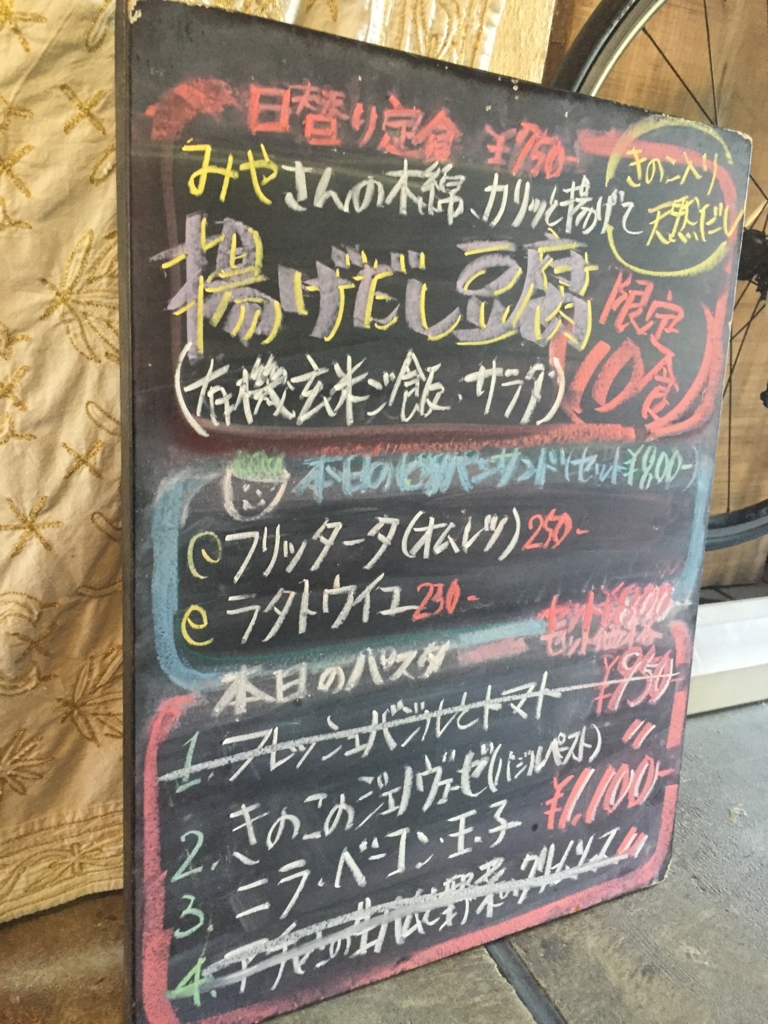 日替り定食 ¥750-
みやさんの木綿、カリッと揚げて
きのこ入り
天然だし
揚げだし豆腐
限定
10食
(有機玄米ご飯、サラダ)
本日のピタパンサンド(セット¥800-)
フリッタータ(オムレツ) 250-
ラタトウイユ 230-
本日のパスタ
セット価格
1. フレッシュバジルとトマト ¥950
2. きのこのジェノヴェーゼ(バジルペースト) 〃
3. ニラ・ベーコン・玉子 ¥1,100-
4. 〃